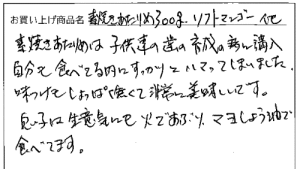 お買い上げ商品名 素焼きあたりめ300g. ソフトマンゴー 他
素焼きあたりめは 子供達の歯の育成の為に購入
自分も食べてる内にすっかりとハマってしまいました.
味つけもしょっぱく無くて非常に美味しいです。
息子は生意気にも火であぶり マヨしょうゆで
食べてます。